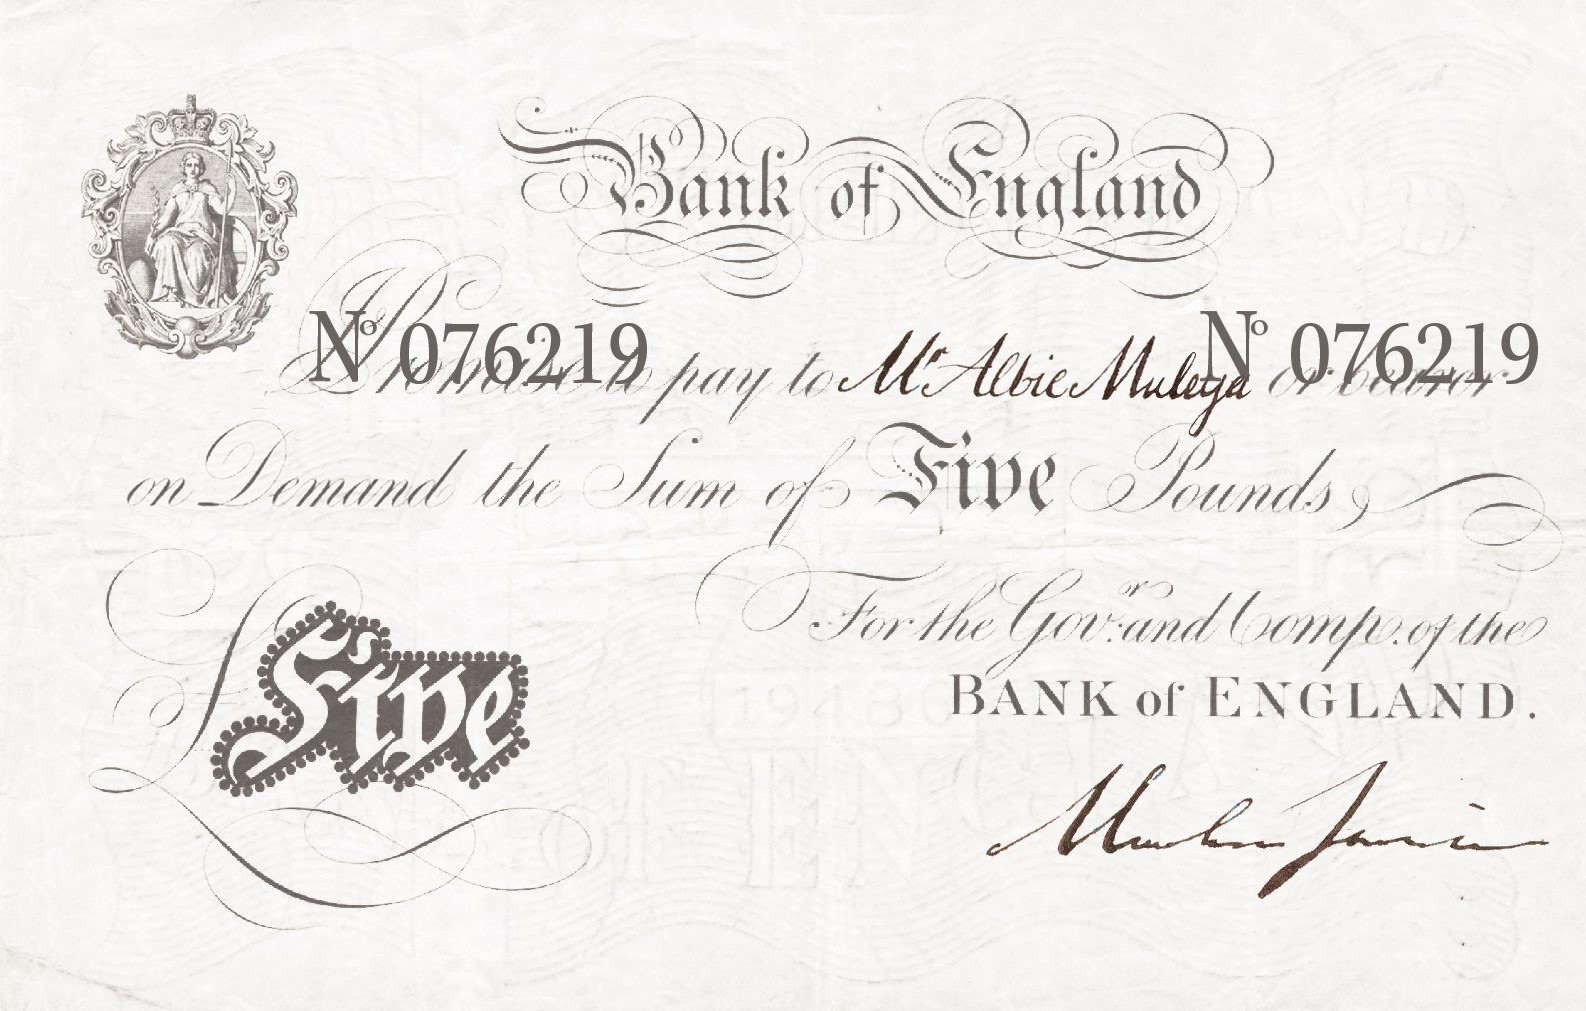 Bank of England
Nº 076219 Nº 076219
I Promise to pay to Mr Albie Muleya or bearer
on Demand the Sum of Five Pounds
For the Govr. and Compa. of the
BANK of ENGLAND.
£ Five